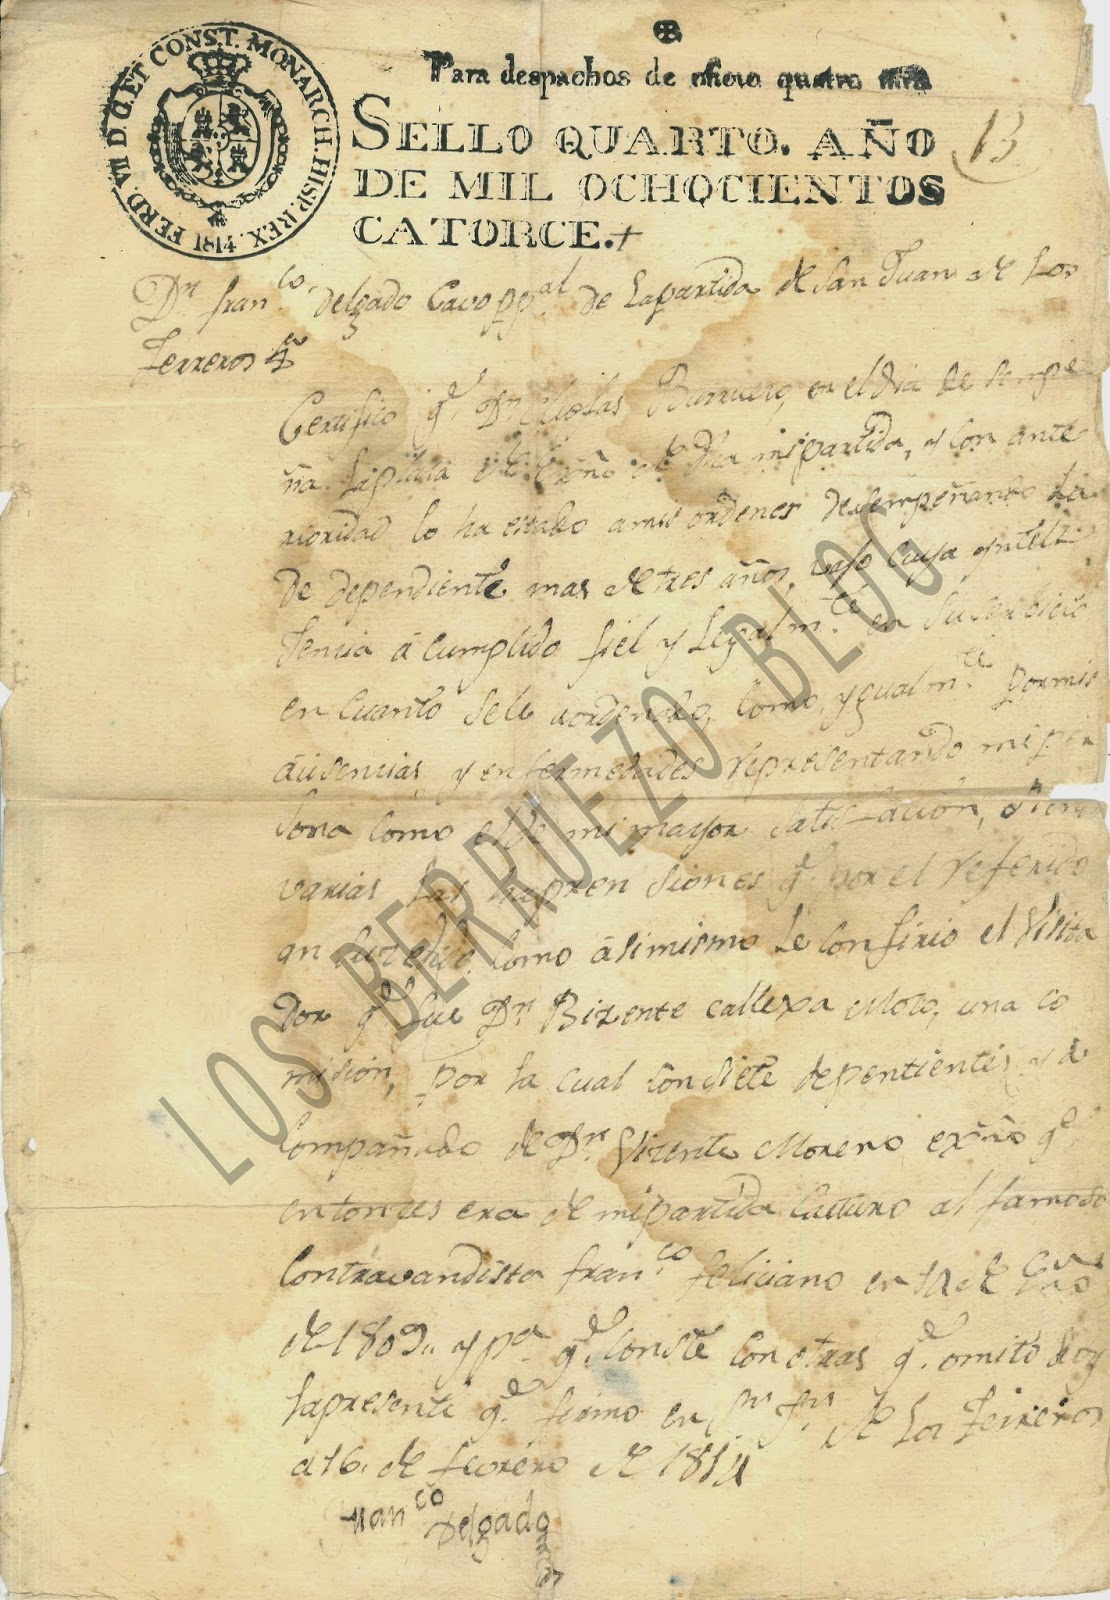 FERD. VII D. G. ET CONST. MONARCH. HISP. REX. 1814
Para despachos de oficio quatro mrs
SELLO QUARTO. AÑO
DE MIL OCHOCIENTOS
CATORCE.+
13
Dn. franco. delgado Cavo ppal de la partida de San Juan de Los
Terreros &a
Certifico qe. Dn. Nicolas Burruezo, en el dia desempe
ña la plaza de de dha mi partida, y con ante
rioridad lo ha estado a mis ordenes desempeñando la
de dependiente mas de tres años, vajo cuya
tencia á cumplido fiel y Legalmte. en su servicio
en cuanto se le a ordenado, como, ygualmte. por mis
áusencias, y enfermedades representando mi per
sona como es de mi mayor satisfacción,
varias las hapren siones qe. por el referido
an como ásimismo le confirio el Visita
dor qe. fue Dn. Bizente callexa Moto, una co
mision, por la cual con siete depentientes y a
Compañado de Dn. Vizente Moreno qe.
entonces era de mi partida Capturo al famoso
Contravandista franco. feliciano en de
de 1809,, y pa. qe. conste con otras qe. omito doy
la presente qe. firmo en Sn. Jn. de los Terreros
a 16. de febrero de 1814
Franco Delgado
LOS BERRUEZO BLOG